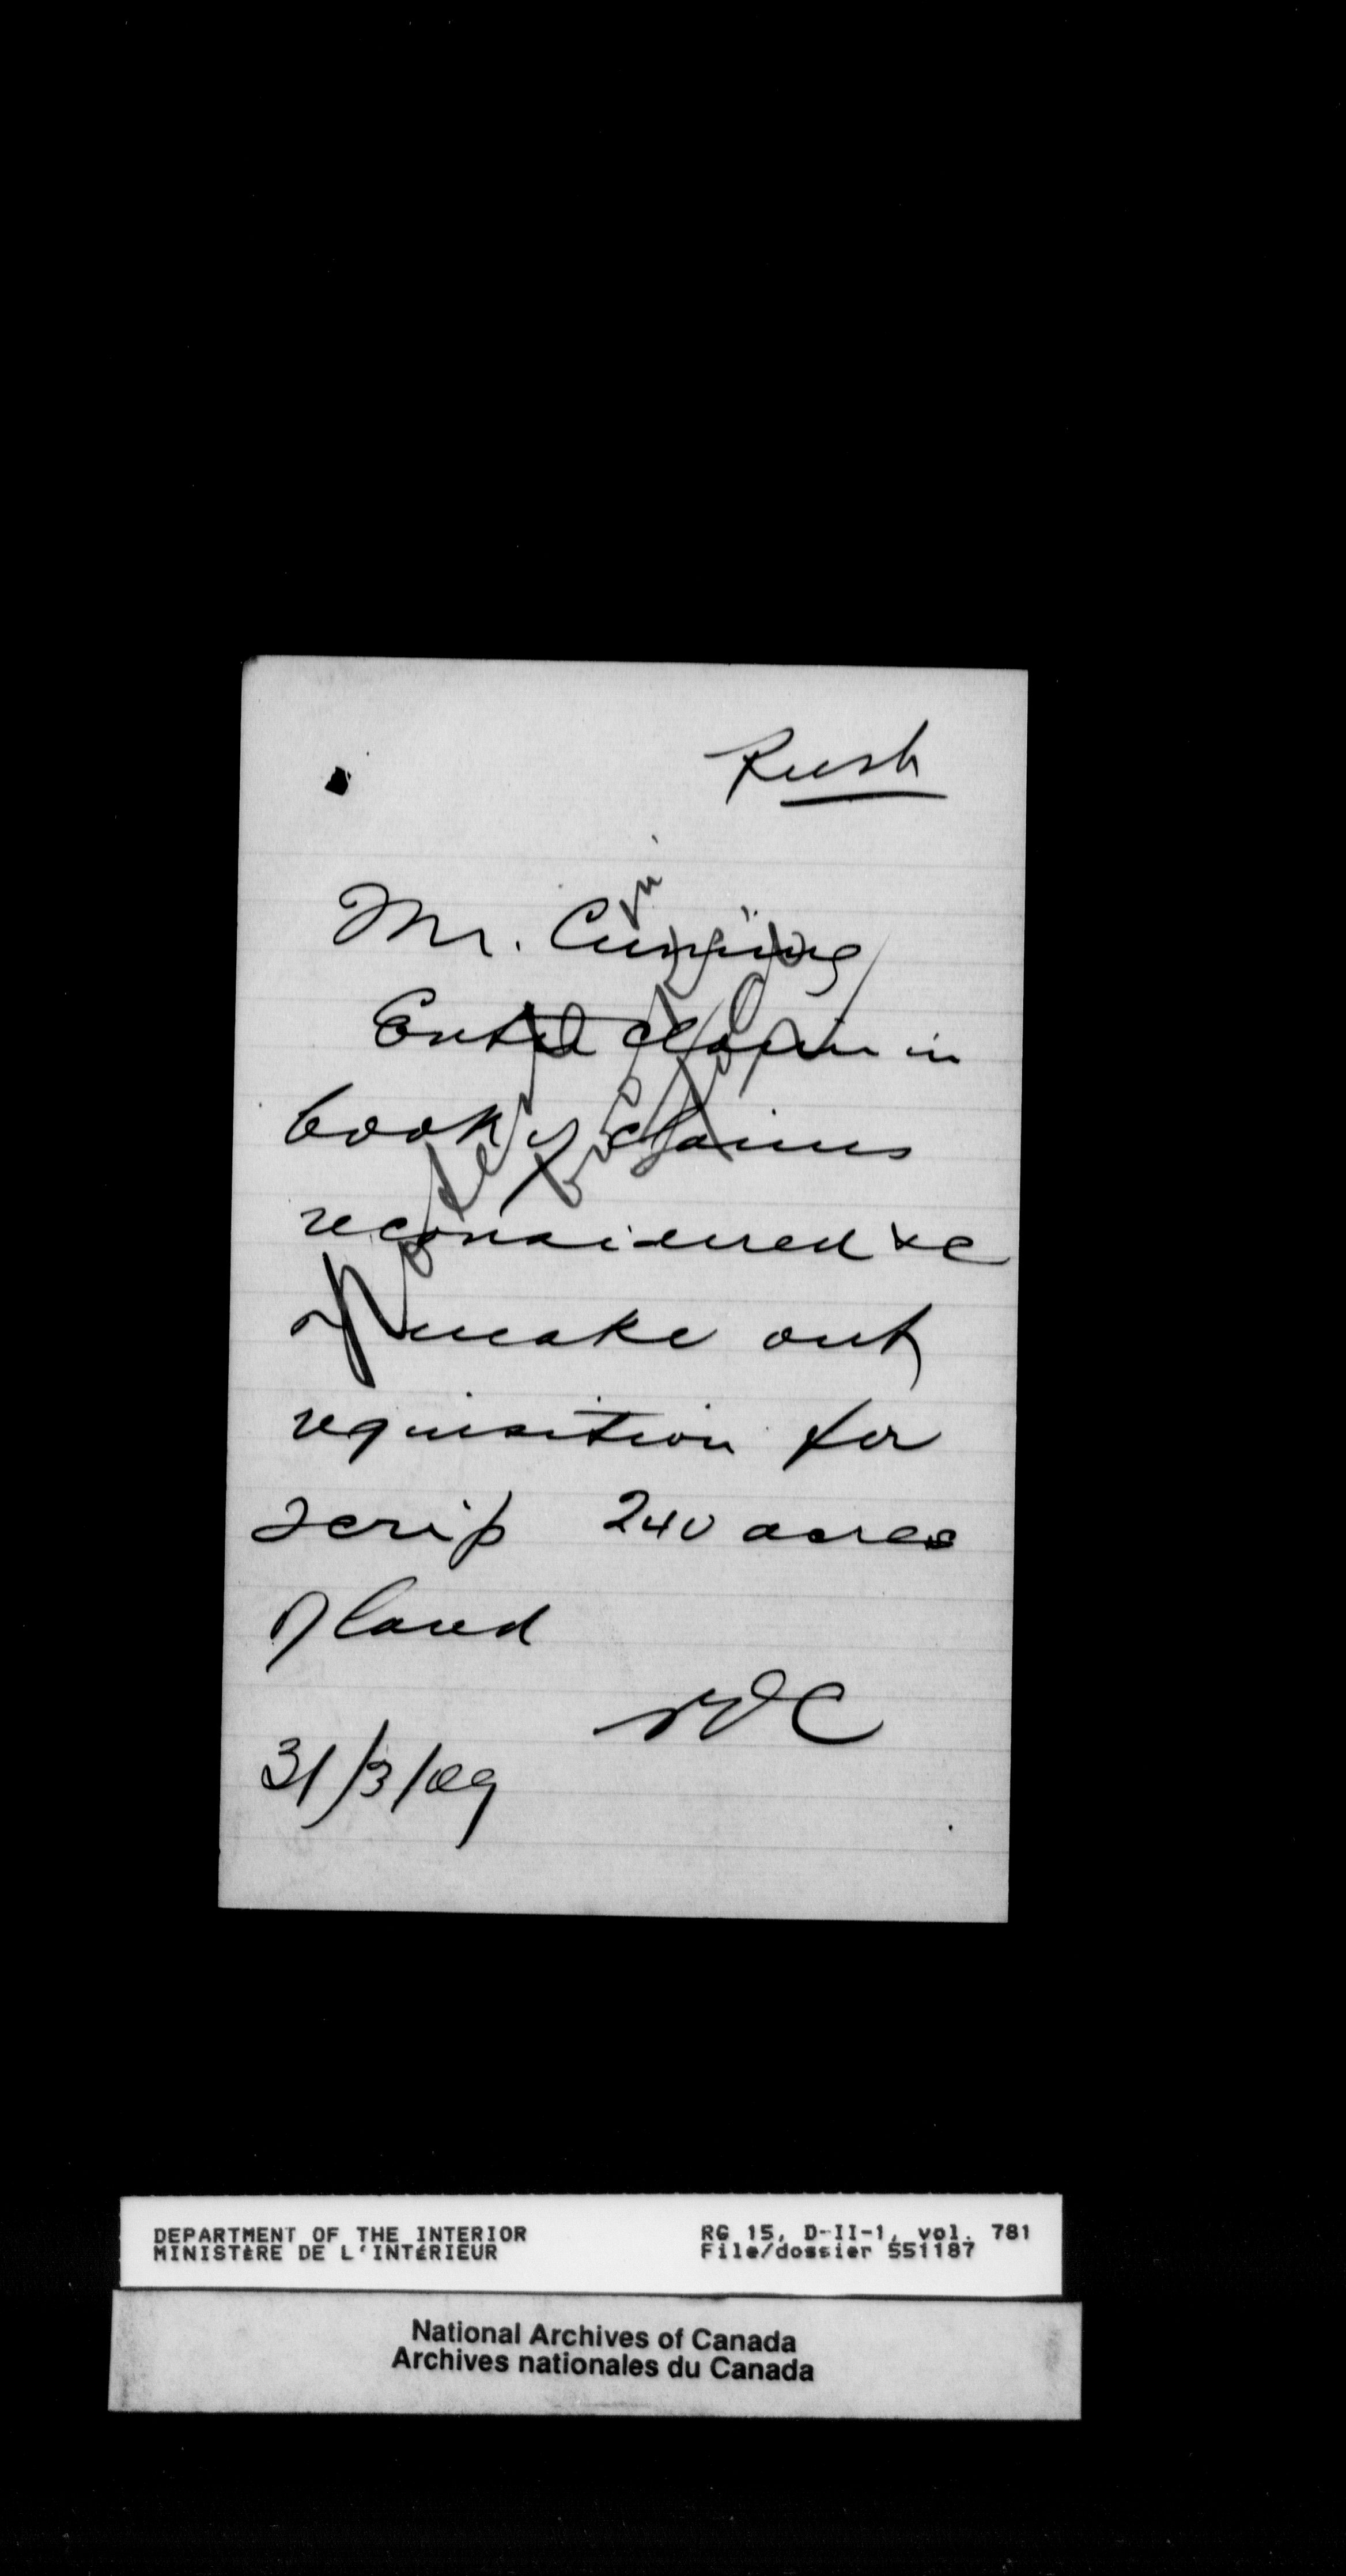 Rush
Mr. Cumming
Enter claim in
book of claims
reconsidered &c
& make out
requisition for
scrip 240 acres
of land
NOC
31/3/09
Noted in
DEPARTMENT OF THE INTERIOR
MINISTÈRE DE L'INTÉRIEUR
RG 15, D-II-1, vol. 781
File/dossier 551187
National Archives of Canada
Archives nationales du Canada